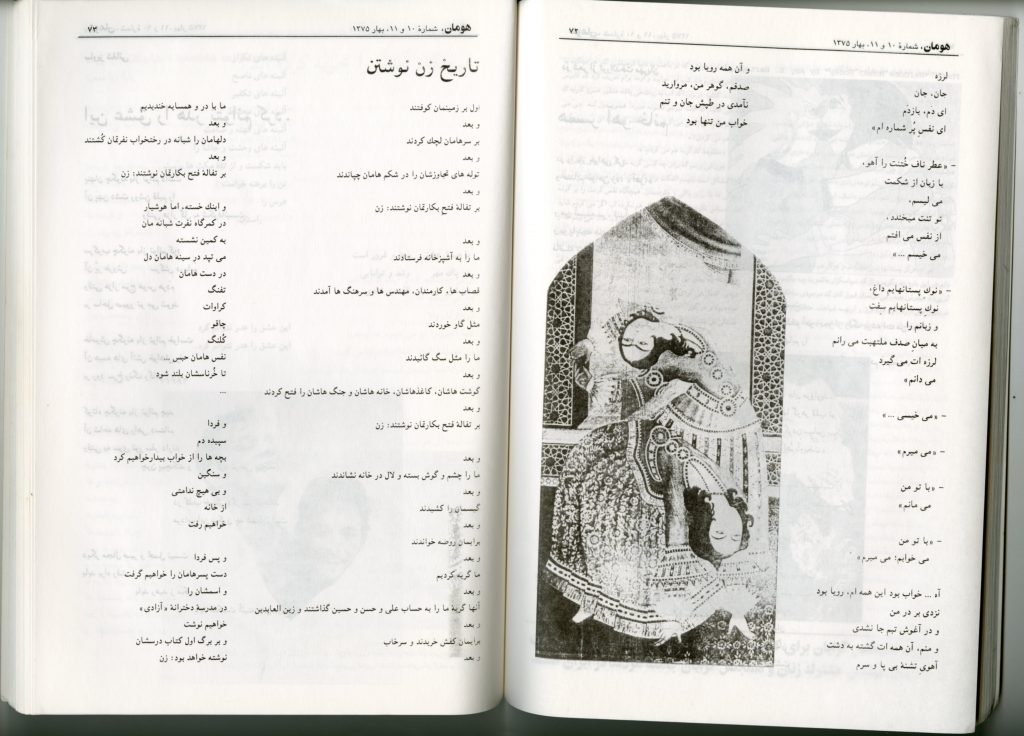 هومان، شمارهٔ ۱۰ و ۱۱، بهار ۱۳۷۵
۷۲
لرزه
جان، جان
ای دم، بازدم
ای نفس پُر شماره ام»
- «عطر ناف خُتنت را آهو،
با زبان از شکمت
می لیسم،
تو تنت میخندد،
از نفس می افتم
می خیسم ...»
- «نوکِ پستانهایم داغ،
نوکِ پستانهایم سِفت
و زبانم را
به میانِ صدف ملتهبت می رانم
لرزه ات می گیرد
می دانم»
- «می خیسی ...»
- «می میرم»
- «با تو من
می مانم»
- «با تو من
می خوابم؛ می میرم»
آه ... خواب بود این همه ام، رویا بود
نزدی بر در من
و در آغوش تبم جا نشدی
و منم، آن همه ات گشته به دشت
آهویِ تشنهٔ بی پا و سرم
و آن همه رویا بود
صدفم، گوهر من، مروارید
نآمدی در طپش جان و تنم
خواب من تنها بود
هومان، شمارهٔ ۱۰ و ۱۱، بهار ۱۳۷۵
۷۳
تاریخ زن نوشتن
اول بر زمینمان کوفتند
و بعد
بر سرهامان لچک کردند
و بعد
توله های تجاوزشان را در شکم هامان چپاندند
و بعد
بر تفالهٔ فتح بکارتمان نوشتند: زن
و بعد
ما را به آشپزخانه فرستادند
و بعد
قصاب ها، کارمندان، مهندس ها و سرهنگ ها آمدند
و بعد
مثل گاو خوردند
و بعد
ما را مثل سگ گائیدند
و بعد
گوشت هاشان، کاغذهاشان، خانه هاشان و جنگ هاشان را فتح کردند
و بعد
بر تفالهٔ فتح بکارتمان نوشتند: زن
و بعد
ما را چشم و گوش بسته و لال در خانه نشاندند
و بعد
گیسمان را کشیدند
و بعد
برایمان روضه خواندند
و بعد
ما گریه کردیم
و بعد
آنها گریهٔ ما را به حساب علی و حسن و حسین گذاشتند و زین العابدین
و بعد
برایمان کفش خریدند و سرخاب
و بعد
ما با در و همسایه خندیدیم
و بعد
دلهامان را شبانه در رختخواب نفرتمان کُشتند
و بعد
بر تفالهٔ فتح بکارتمان نوشتند: زن
و اینک خسته، اما هوشیار
در کمرگاه نفرت شبانه مان
به کمین نشسته
می تپد در سینه هامان دل
در دست هامان
تفنگ
کراوات
چاقو
کُلنگ
نفس هامان حبس ...
تا خُرناسشان بلند شود
...
و فردا
سپیده دم
بچه ها را از خواب بیدارخواهیم کرد
و سنگین
و بی هیچ ندامتی
از خانه
خواهیم رفت
و پس فردا
دست پسرهامان را خواهیم گرفت
و اسمشان را
در مدرسهٔ دخترانهٔ «آزادی»
خواهیم نوشت
و بر برگ اول کتاب درسشان
نوشته خواهد بود: زن